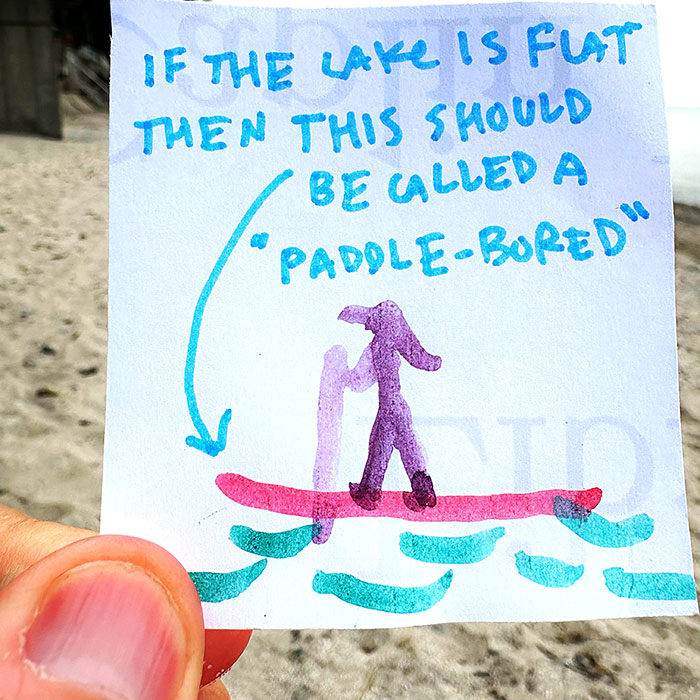 IF THE LAKE IS FLAT
THEN THIS SHOULD
BE CALLED A
"PADDLE-BORED"